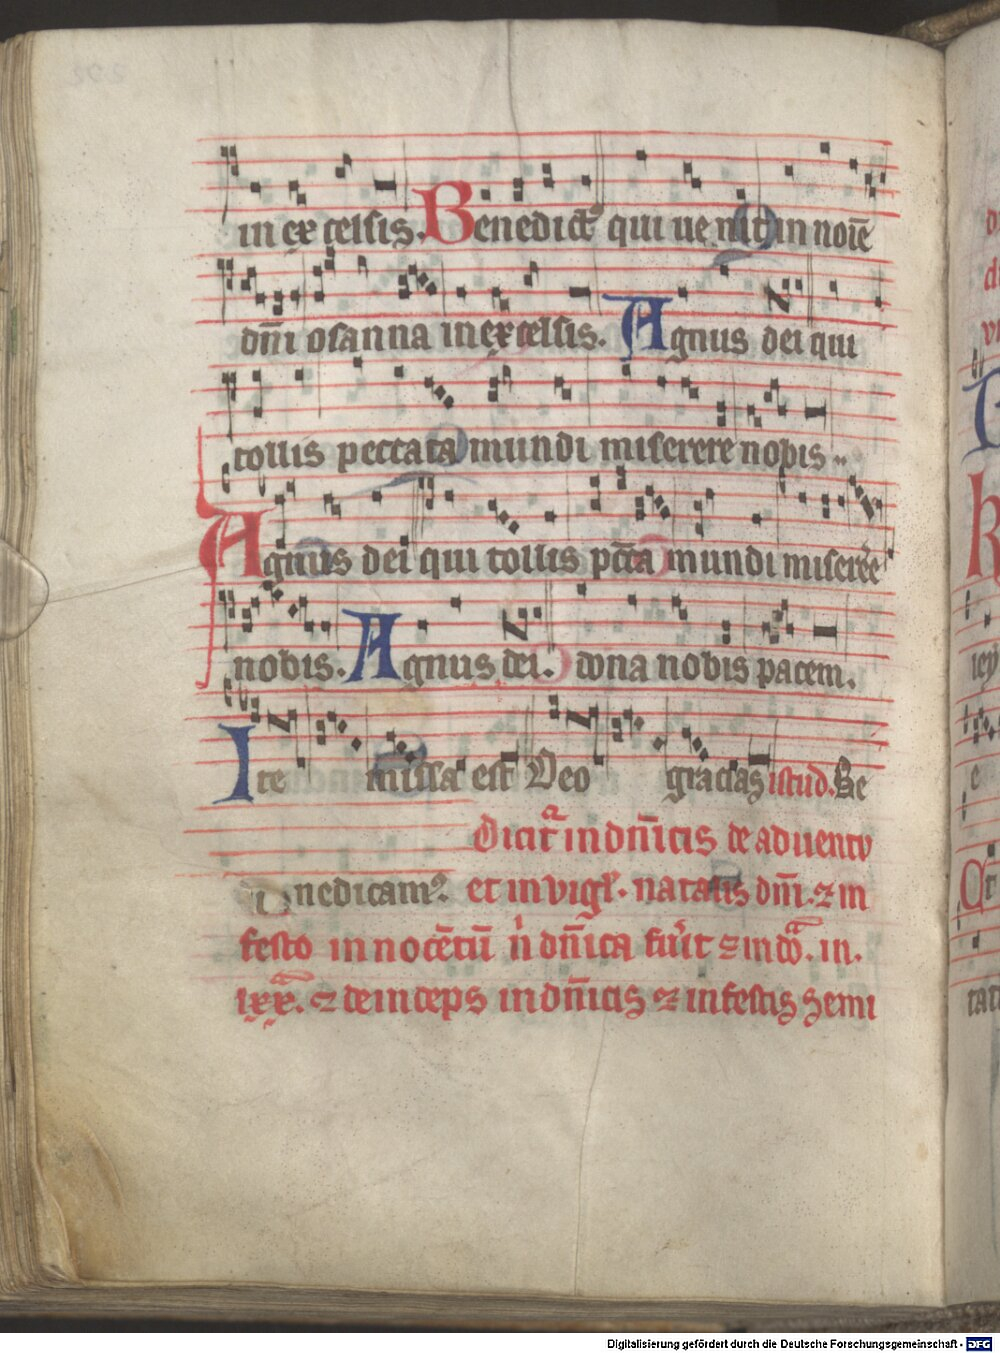 in ex celsis. Benedict⁹ qui ue nit in noīe
dn̄i osanna in excelsis. Agnus dei qui
tollis peccata mundi miserere nobis.
Agnus dei qui tollis pc̄ca mundi miserēe
nobis. Agnus dei. dona nobis pacem.
Ite missa est Deo gracias istud. Be
Dicit᷑ in dn̄icis de aduentu
nedicam⁹. et in vigł. natalis dn̄i. ⁊ in
festo innocētū dn̄ica fu̇it ⁊ in in.
lxx. ⁊ deinceps in dn̄icis ⁊ in festis semi
Digitalisierung gefördert durch die Deutsche Forschungsgemeinschaft - DFG